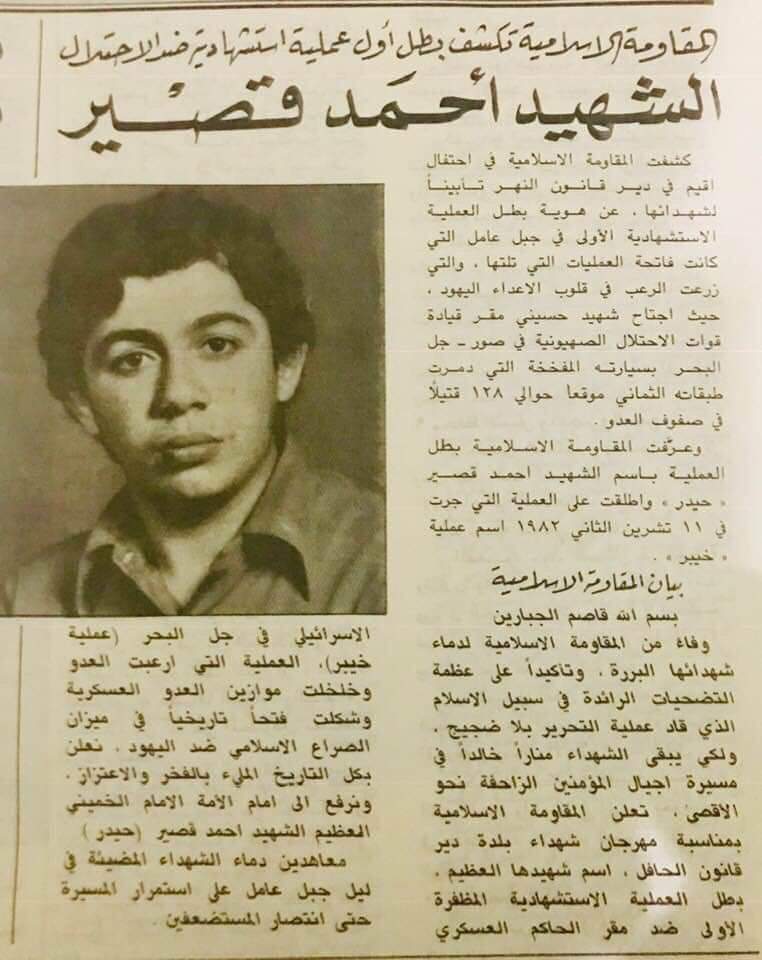 المقاومة الاسلامية تكشف بطل أول عملية استشهادية ضد الاحتلال
الشهيد أحمَد قصْير
كشفت المقاومة الاسلامية في احتفال
اقيم في دير قانون النهر تأبيناً
لشهدائها ، عن هوية بطل العملية
الاستشهادية الأولى في جبل عامل التي
كانت فاتحة العمليات التي تلتها ، والتي
زرعت الرعب في قلوب الاعداء اليهود ،
حيث اجتاح شهيد حسيني مقر قيادة
قوات الاحتلال الصهيونية في صور ـ جل
البحر بسيارته المفخخة التي دمرت
طبقاته الثماني موقعاً حوالي ١٢٨ قتيلًا
في صفوف العدو .
وعرّفت المقاومة الاسلامية بطل
العملية باسم الشهيد احمد قصير
« حيدر » واطلقت على العملية التي جرت
في ١١ تشرين الثاني ١٩٨٢ اسم عملية
« خيبر » .
بيان المقاومة الاسلامية
بسم الله قاصم الجبارين
وفاءً من المقاومة الاسلامية لدماء
شهدائها البررة ، وتاكيداً على عظمة
التضحيات الرائدة في سبيل الاسلام
الذي قاد عملية التحرير بلا ضجيج ،
ولكي يبقى الشهداء مناراً خالداً في
مسيرة اجيال المؤمنين الزاحفة نحو
الاقصى ، تعلن المقاومة الاسلامية
بمناسبة مهرجان شهداء بلدة دير
قانون الحافل ، اسم شهيدها العظيم ،
بطل العملية الاستشهادية المظفرة
الأولى ضد مقر الحاكم العسكري
الاسرائيلي في جل البحر (عملية
خيبر)، العملية التي ارعبت العدو
وخلخلت موازين العدو العسكرية
وشكلت فتحاً تاريخياً في ميزان
الصراع الاسلامي ضد اليهود ، نعلن
بكل التاريخ المليء بالفخر والاعتزاز ،
ونرفع الى امام الأمة الامام الخميني
العظيم الشهيد احمد قصير (حيدر)
معاهدين دماء الشهداء المضيئة في
ليل جبل عامل على استمرار المسيرة
حتى انتصار المستضعفين .